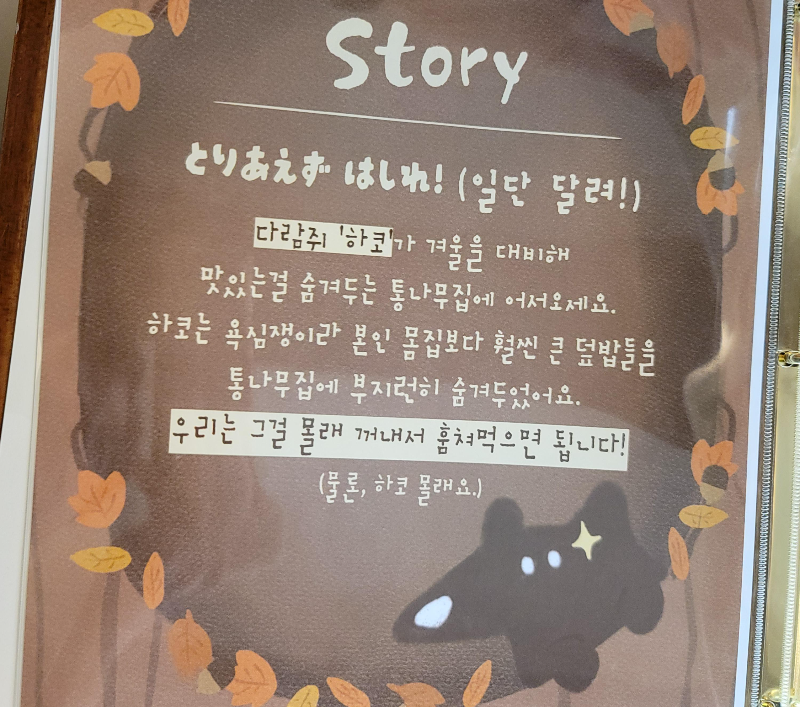 Story
とりあえず はしれ! (일단 달려!)
다람쥐 '하코'가 겨울을 대비해
맛있는걸 숨겨두는 통나무집에 어서오세요.
하코는 욕심쟁이라 본인 몸집보다 훨씬 큰 덮밥들을
통나무집에 부지런히 숨겨두었어요.
우리는 그걸 몰래 꺼내서 훔쳐먹으면 됩니다!
(물론, 하코 몰래요.)